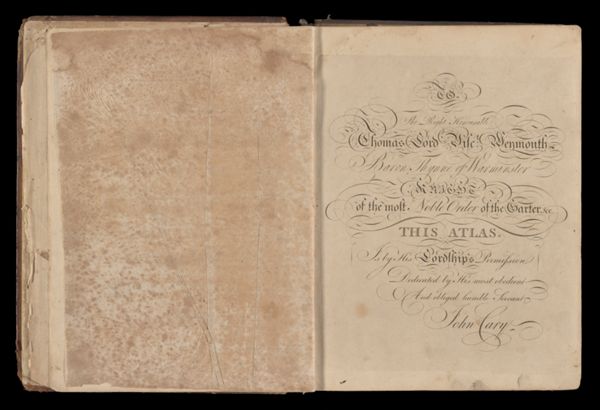 TO
The Right Honourable
Thomas Lord Visc.t Weymouth
Baron Thynne of Warminster
KNIGHT
of the most Noble Order of the Garter &c.
THIS ATLAS.
Is by His Lordship's Permission
Dedicated by His most obedient
And obliged humble Servant
John Cary